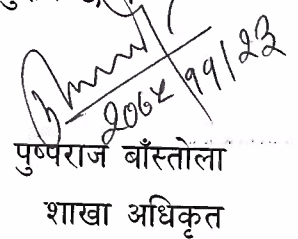 २०७४/११/२३
पुष्पराज बाँस्तोला
शाखा अधिकृत